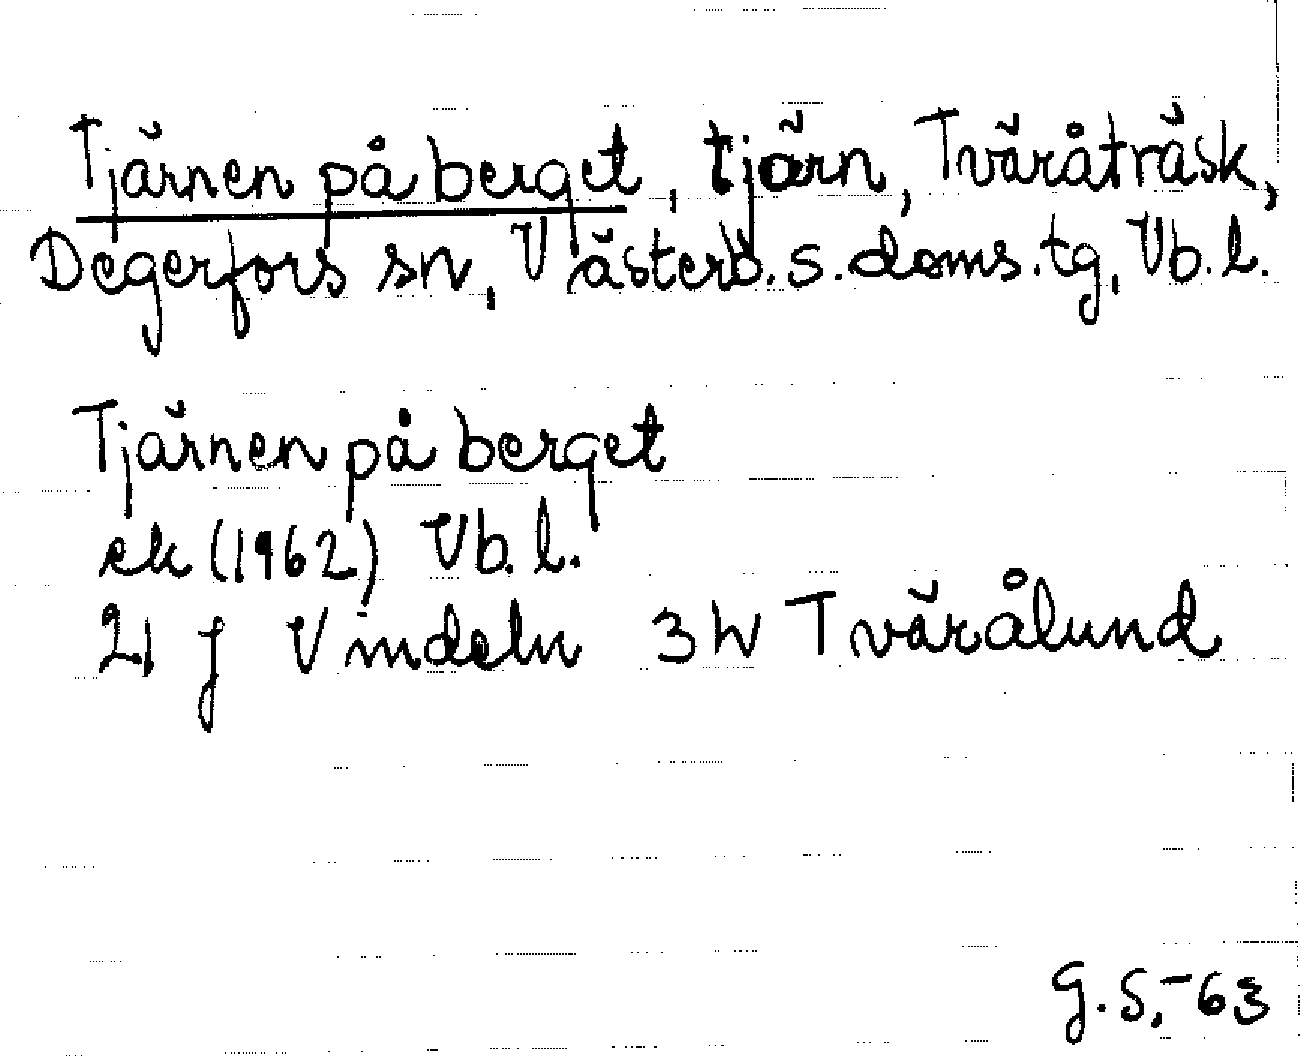 Tjärnen på berget, tjärn, Tväråträsk,
Degerfors sn, Västerb.s.doms.tg, Vb.l.
Tjärnen på berget
ek (1962) Vb.l.
21 J Vindeln 3h Tvärålund
G.S,-63